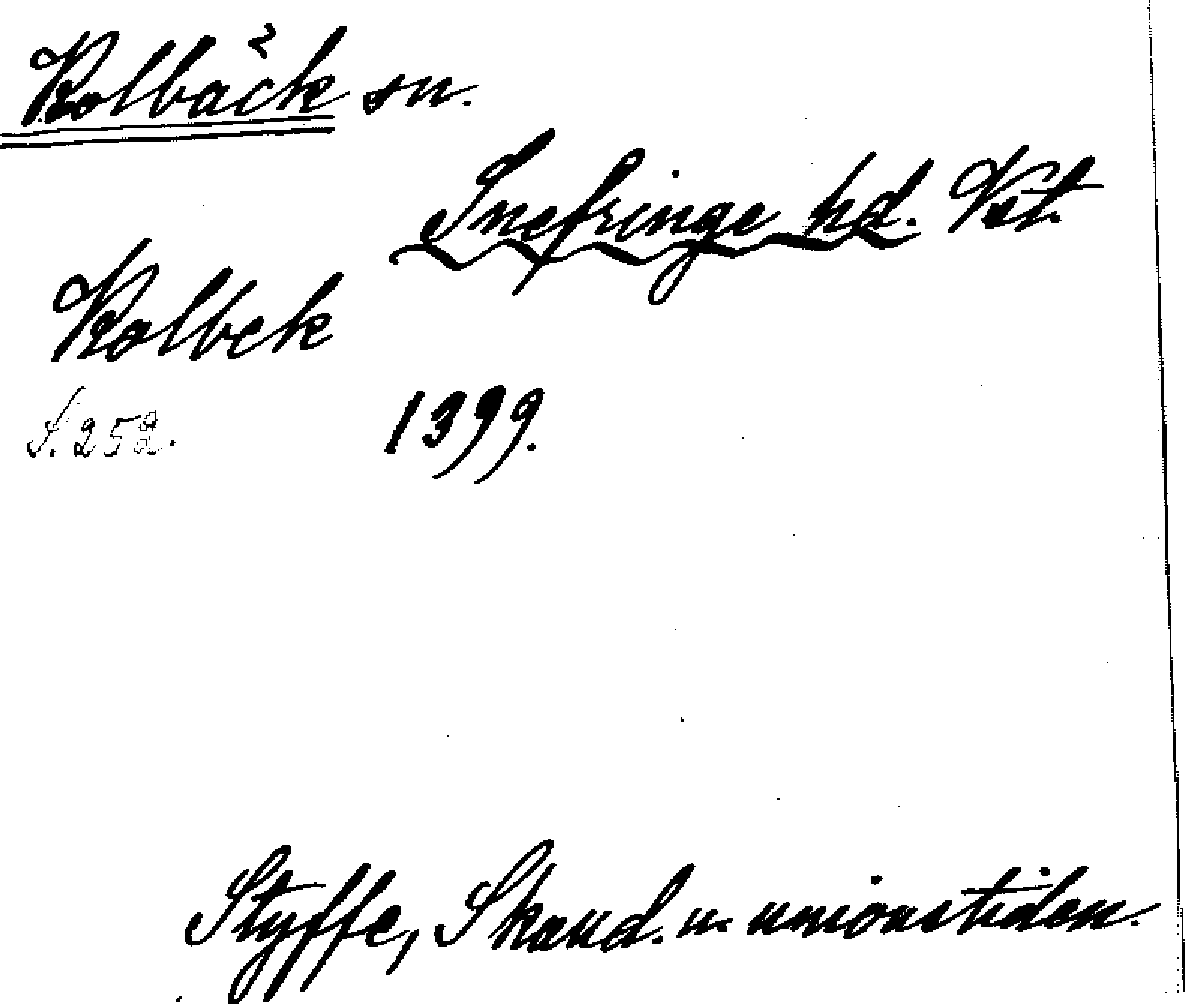 Kolbäck sn.
Snefringe hd. Vst.
Kolbek
S. 252. 1399.
Styffe, Skand. u. unionstiden.